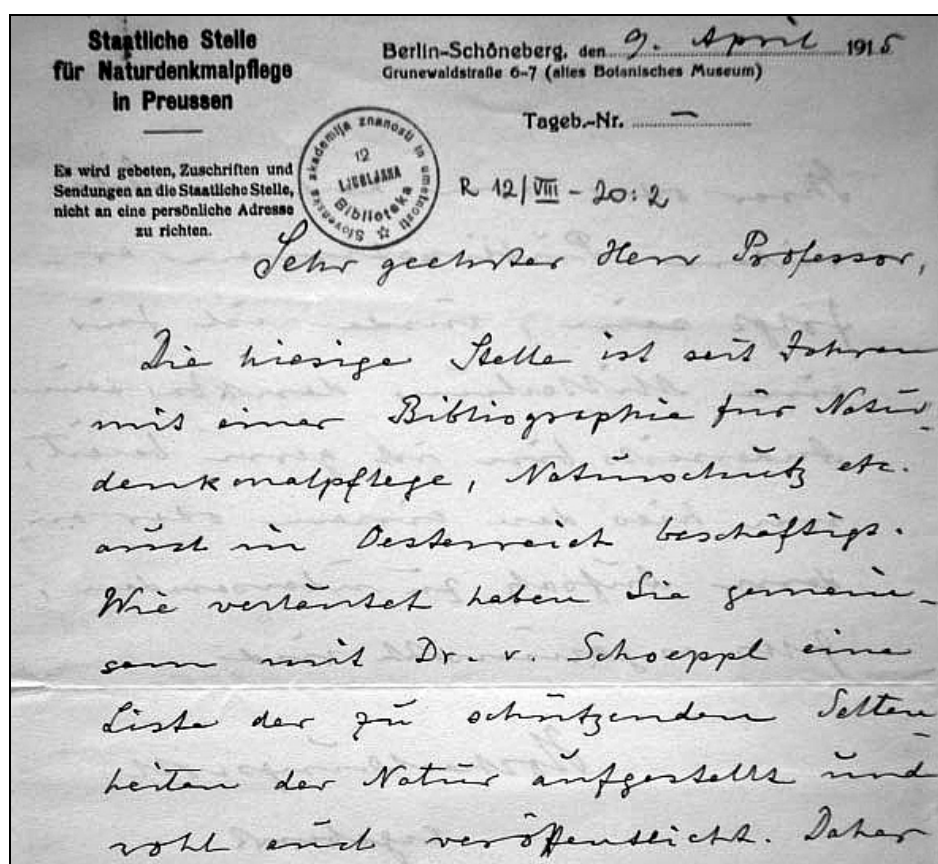 Staatliche Stelle
für Naturdenkmalpflege
in Preussen
Es wird gebeten, Zuschriften und
Sendungen an die Staatliche Stelle,
nicht an eine persönliche Adresse
zu richten.
Berlin-Schöneberg, den 9. April 1915
Grunewaldstraße 6-7 (altes Botanisches Museum)
Tageb.-Nr. —
Slovenska akademija znanosti in umetnosti
12
LJUBLJANA
Biblioteka
R 12/VIII - 20:2
Sehr geehrter Herr Professor,
Die hiesige Stelle ist seit Jahren
mit einer Bibliographie für Natur-
denkmalpflege, Naturschutz etc.
auch in Oesterreich beschäftigt.
Wie verlautet haben Sie gemein-
sam mit Dr. v. Schoeppl eine
Liste der zu schützenden Selten-
heiten der Natur aufgestellt und
wohl auch veröffentlicht. Daher